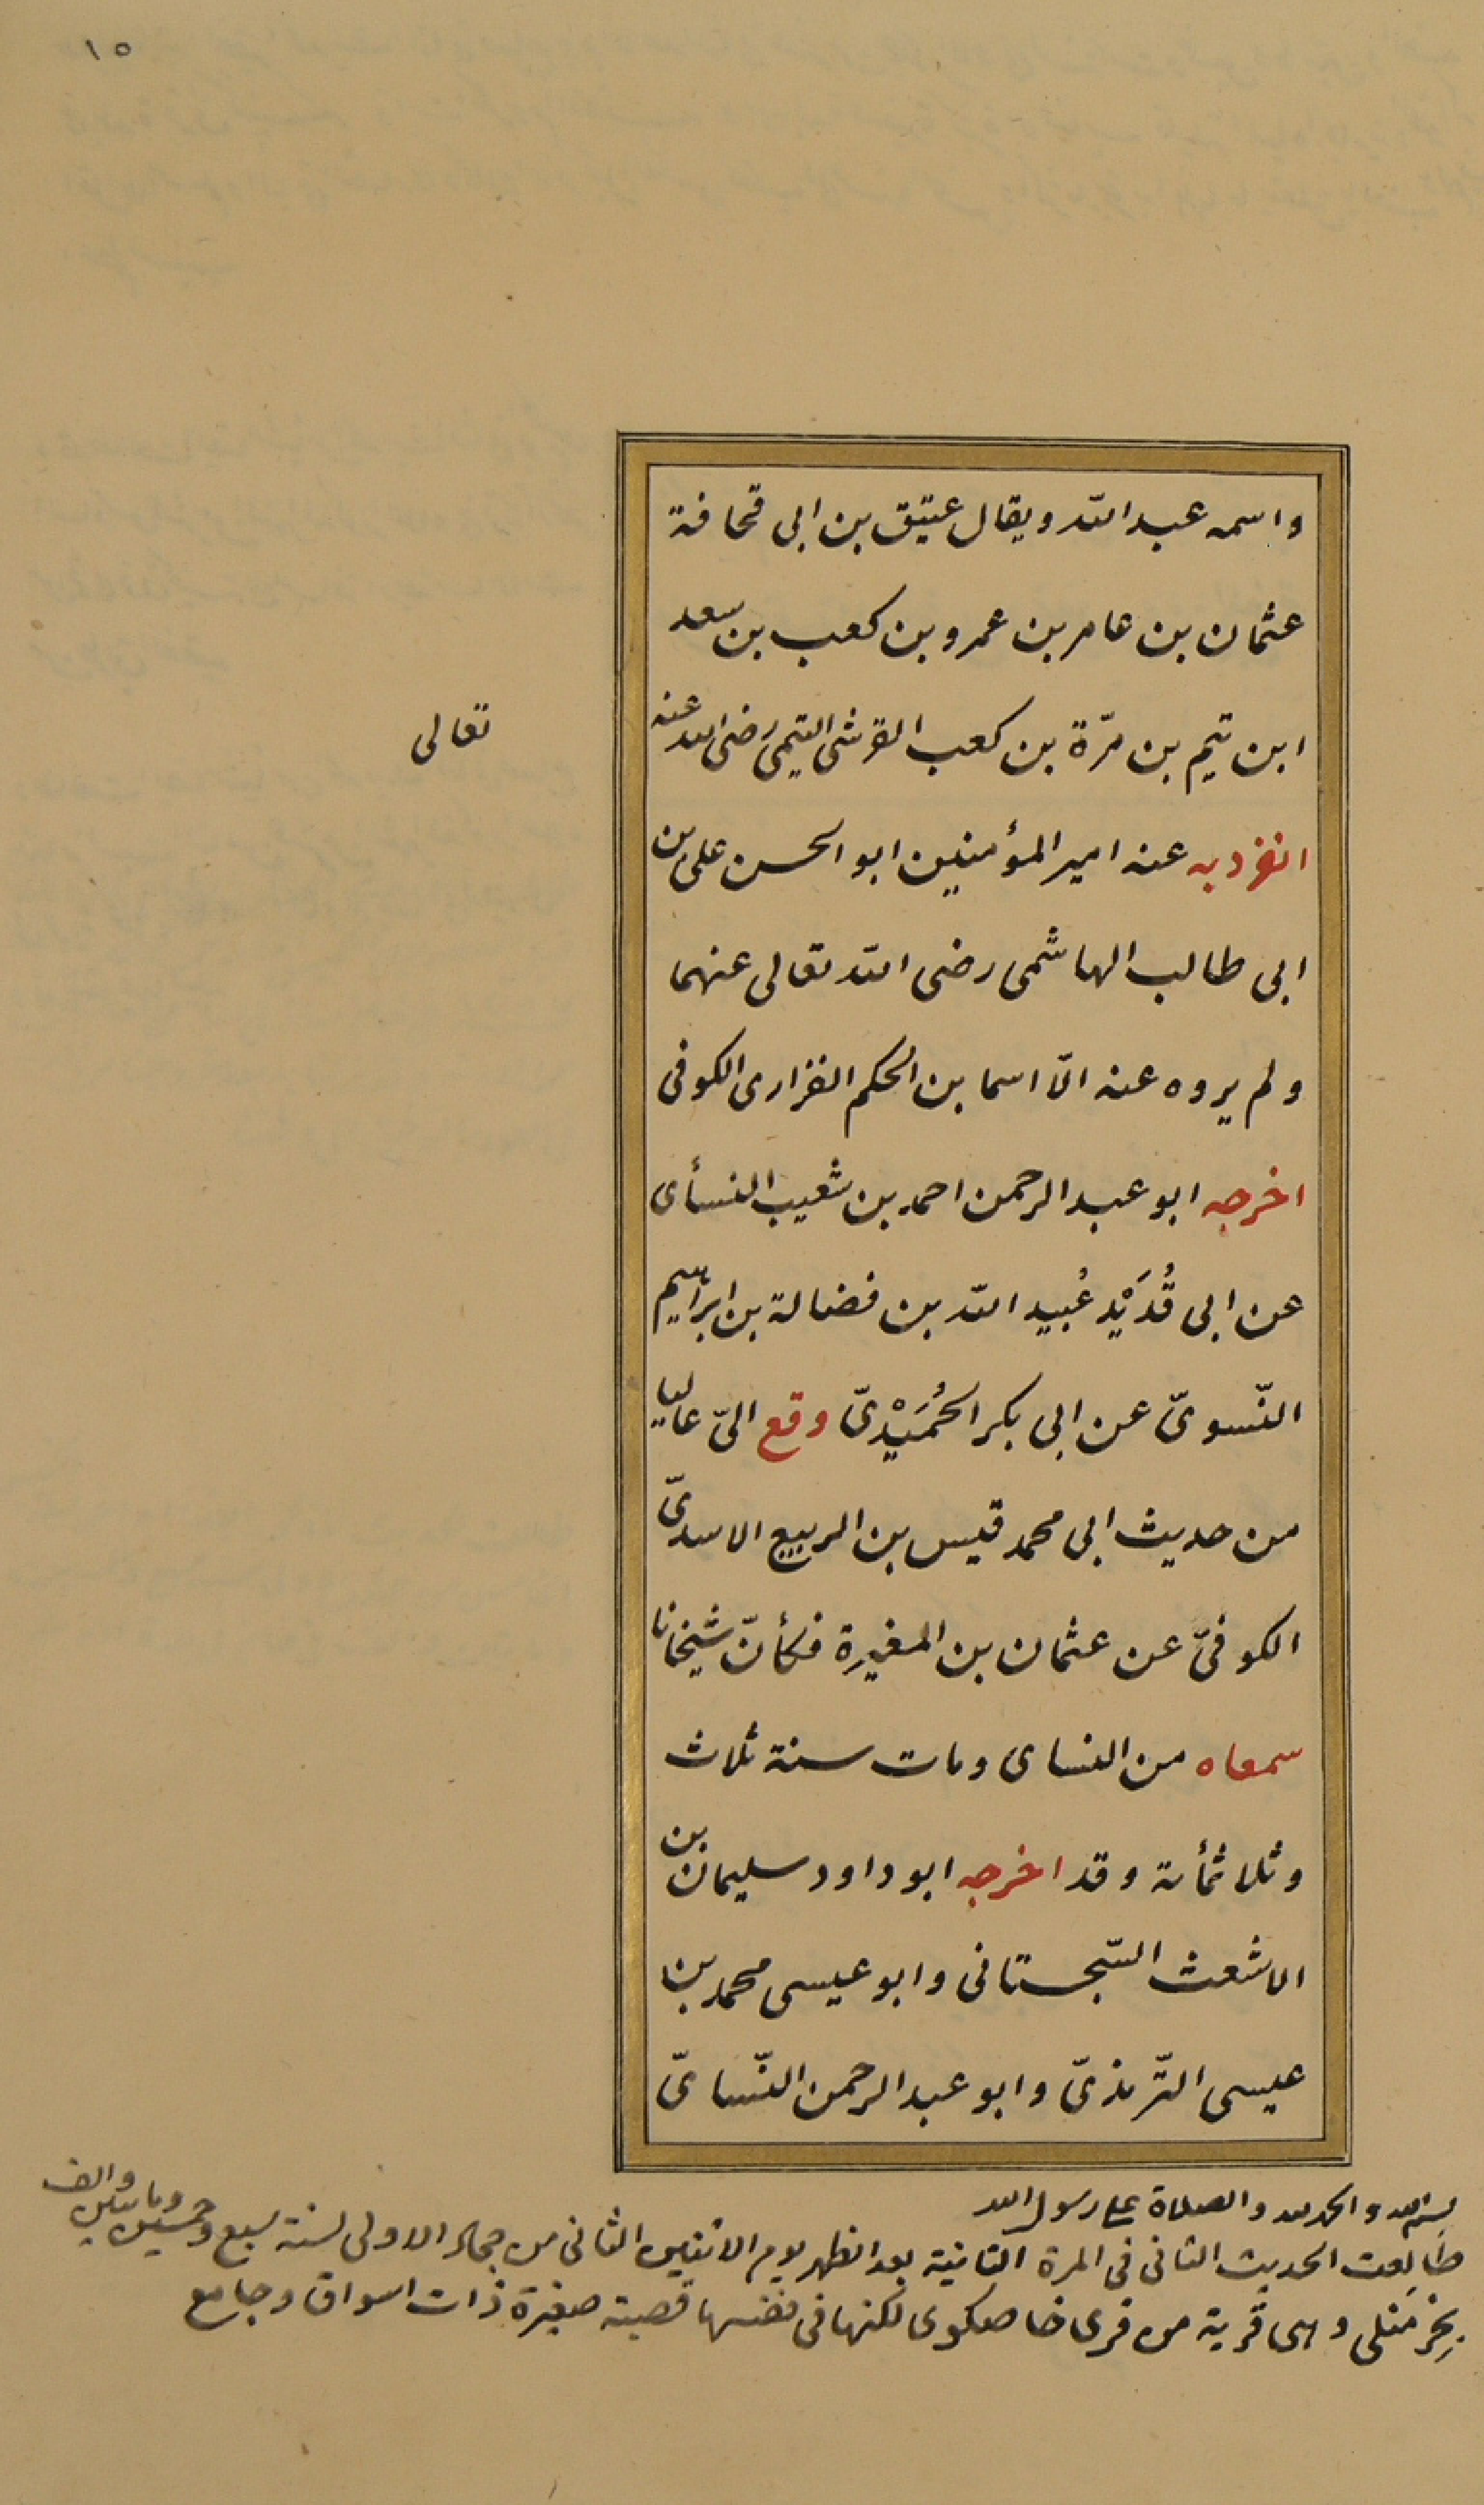 ١٥
واسمه عبد الله ويقال عتيق بن ابى قحافة
عثمان بن عامر بن عمرو بن كعب بن سعد
ابن تيم بن مرّة بن كعب القرشى التيمى رضى الله عنه
تعالى
انفرد به عنه امير المؤمنين ابو الحسن على بن
ابى طالب الهاشمى رضى الله تعالى عنهما
ولم يروه عنه الّا اسما بن الحكم الفزارى الكوفى
اخرجه ابو عبد الرحمن احمد بن شعيب النسأى
عن ابى قُدَيْد عُبيد الله بن فضالة بن ابراهيم
النّسوىّ عن ابى بكر الحُمَيْدىّ وقع الىّ عاليا
من حديث ابى محمد قيس بن الربيع الاسدىّ
الكوفىّ عن عثمان بن المغيرة فكأنّ شيخانا
سمعاه من النساى ومات سنة ثلاث
وثلاثمأئة وقد اخرجه ابو داود سليمان بن
الاشعث السّجستانى وابو عيسى محمد بن
عيسى التّرمذىّ وابو عبد الرحمن النّساىّ
بسم الله والحمد لله والصلاة على رسول الله
طالعت الحديث الثانى فى المرة الثانية بعد الظهر يوم الاثنين الثانى من جماد الاولى لسنة سبع وخمسين ومايتين والف
وهى قرية من قرى خاصكوى لكنها فى نفسها قصبة صغيرة ذات اسواق وجامع